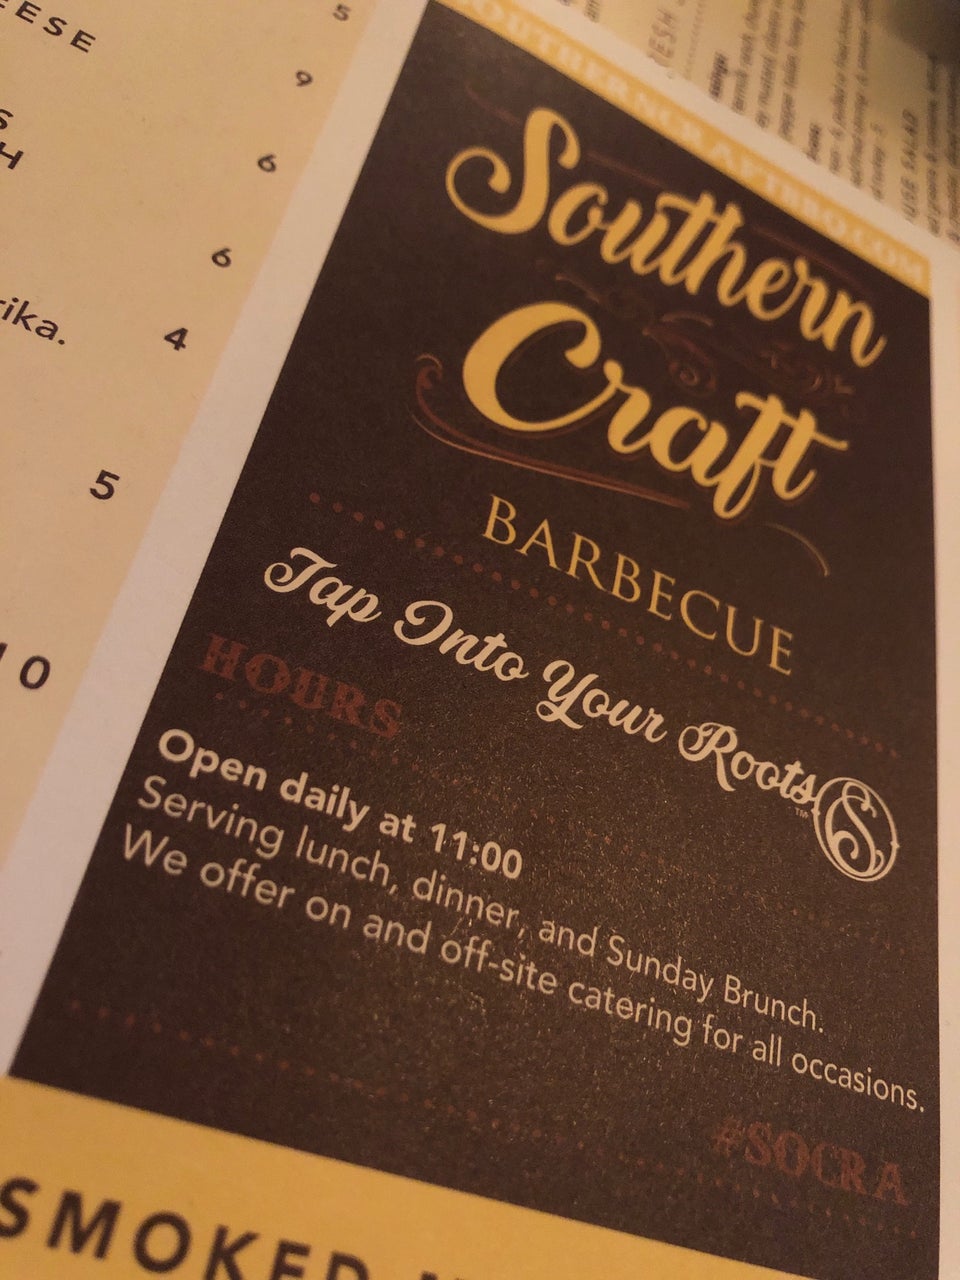 EESE
5
9
S
6
H
6
rika.
4
5
10
SOUTHERNCRAFTBBQ.COM
Southern
Craft
BARBECUE
Tap Into Your Roots
TM
S
HOURS
Open daily at 11:00
Serving lunch, dinner, and Sunday Brunch.
We offer on and off-site catering for all occasions.
#SOCRA
SMOKED